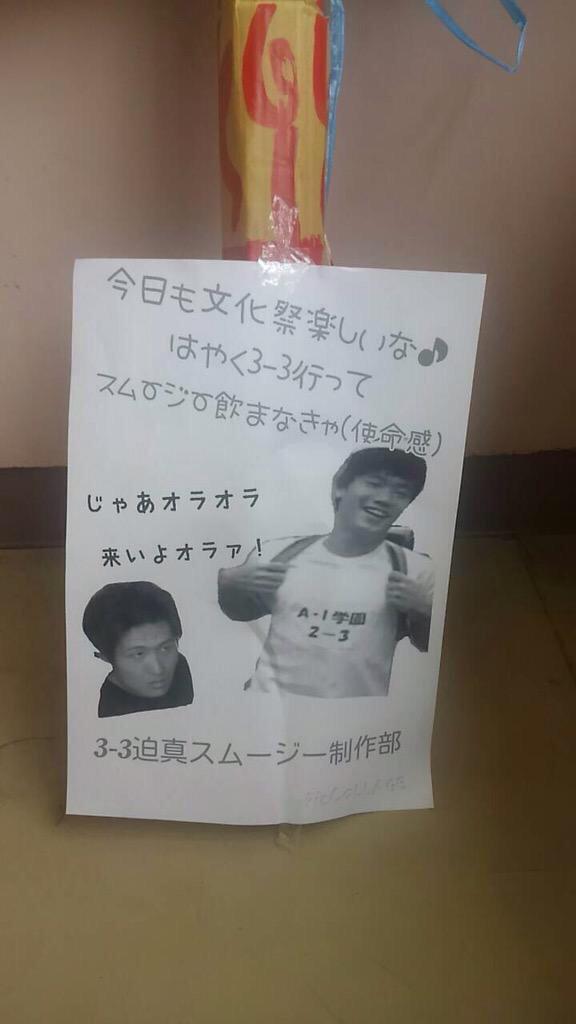 今日も文化祭楽しいな♪
はやく3-3行って
スムージー飲まなきゃ(使命感)
じゃあオラオラ
来いよオラァ!
A-1学園
2-3
3-3迫真スムージー制作部